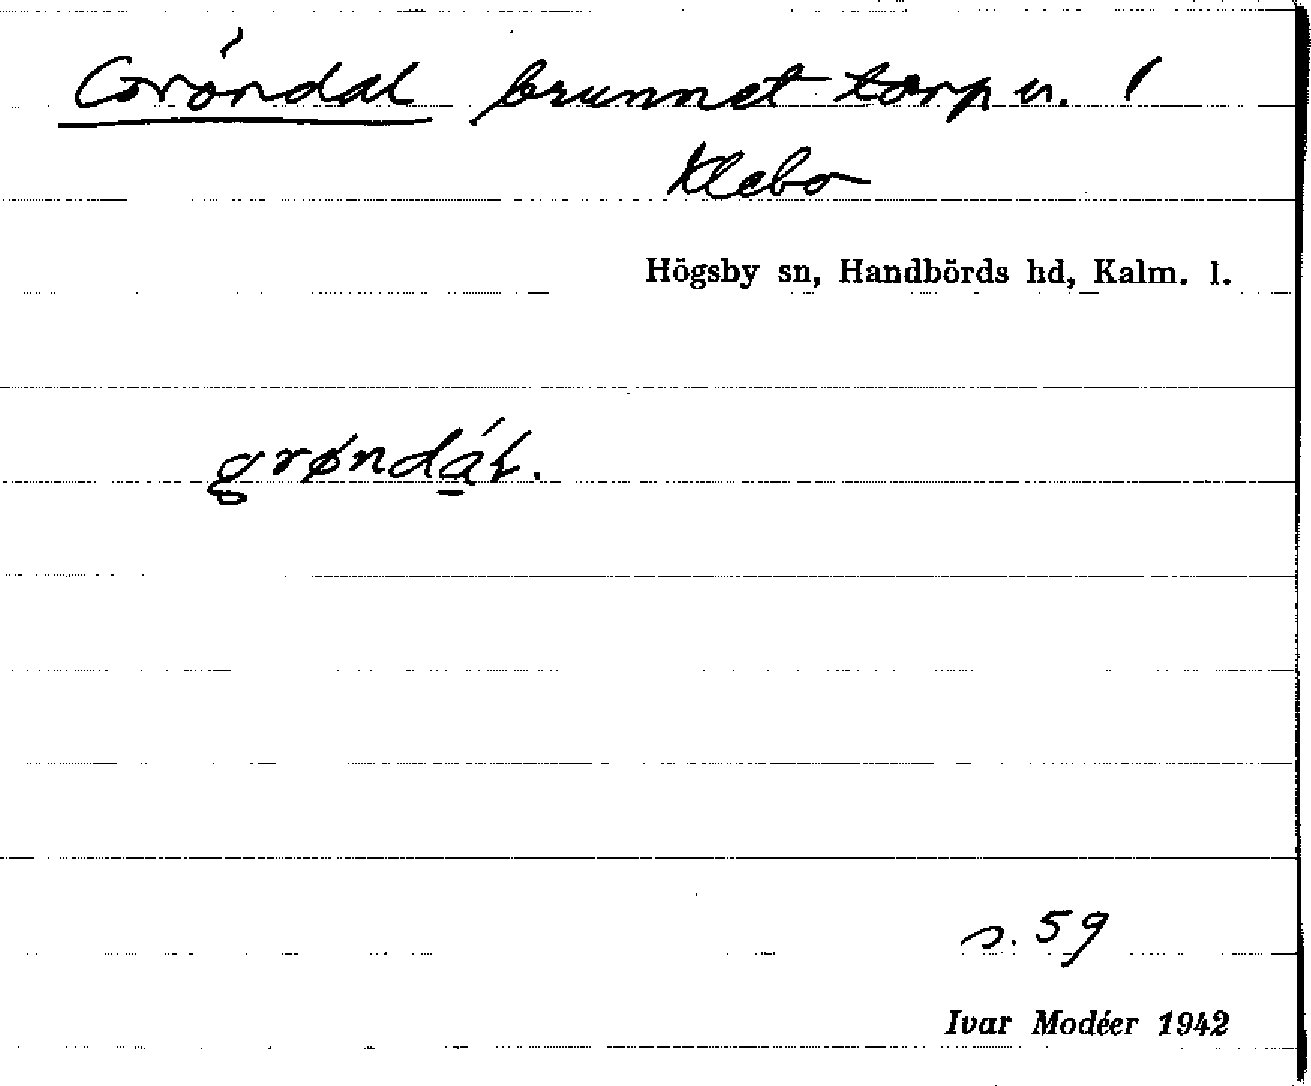 Gröndal brunnet torp u. 1
Klebo
Högsby sn, Handbörds hd, Kalm. l.
grøndát.
s. 59
Ivar Modéer 1942